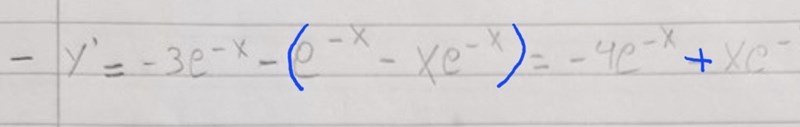 - y' = -3e^{-x} - (e^{-x} - xe^{-x}) = -4e^{-x} + xe^{-}